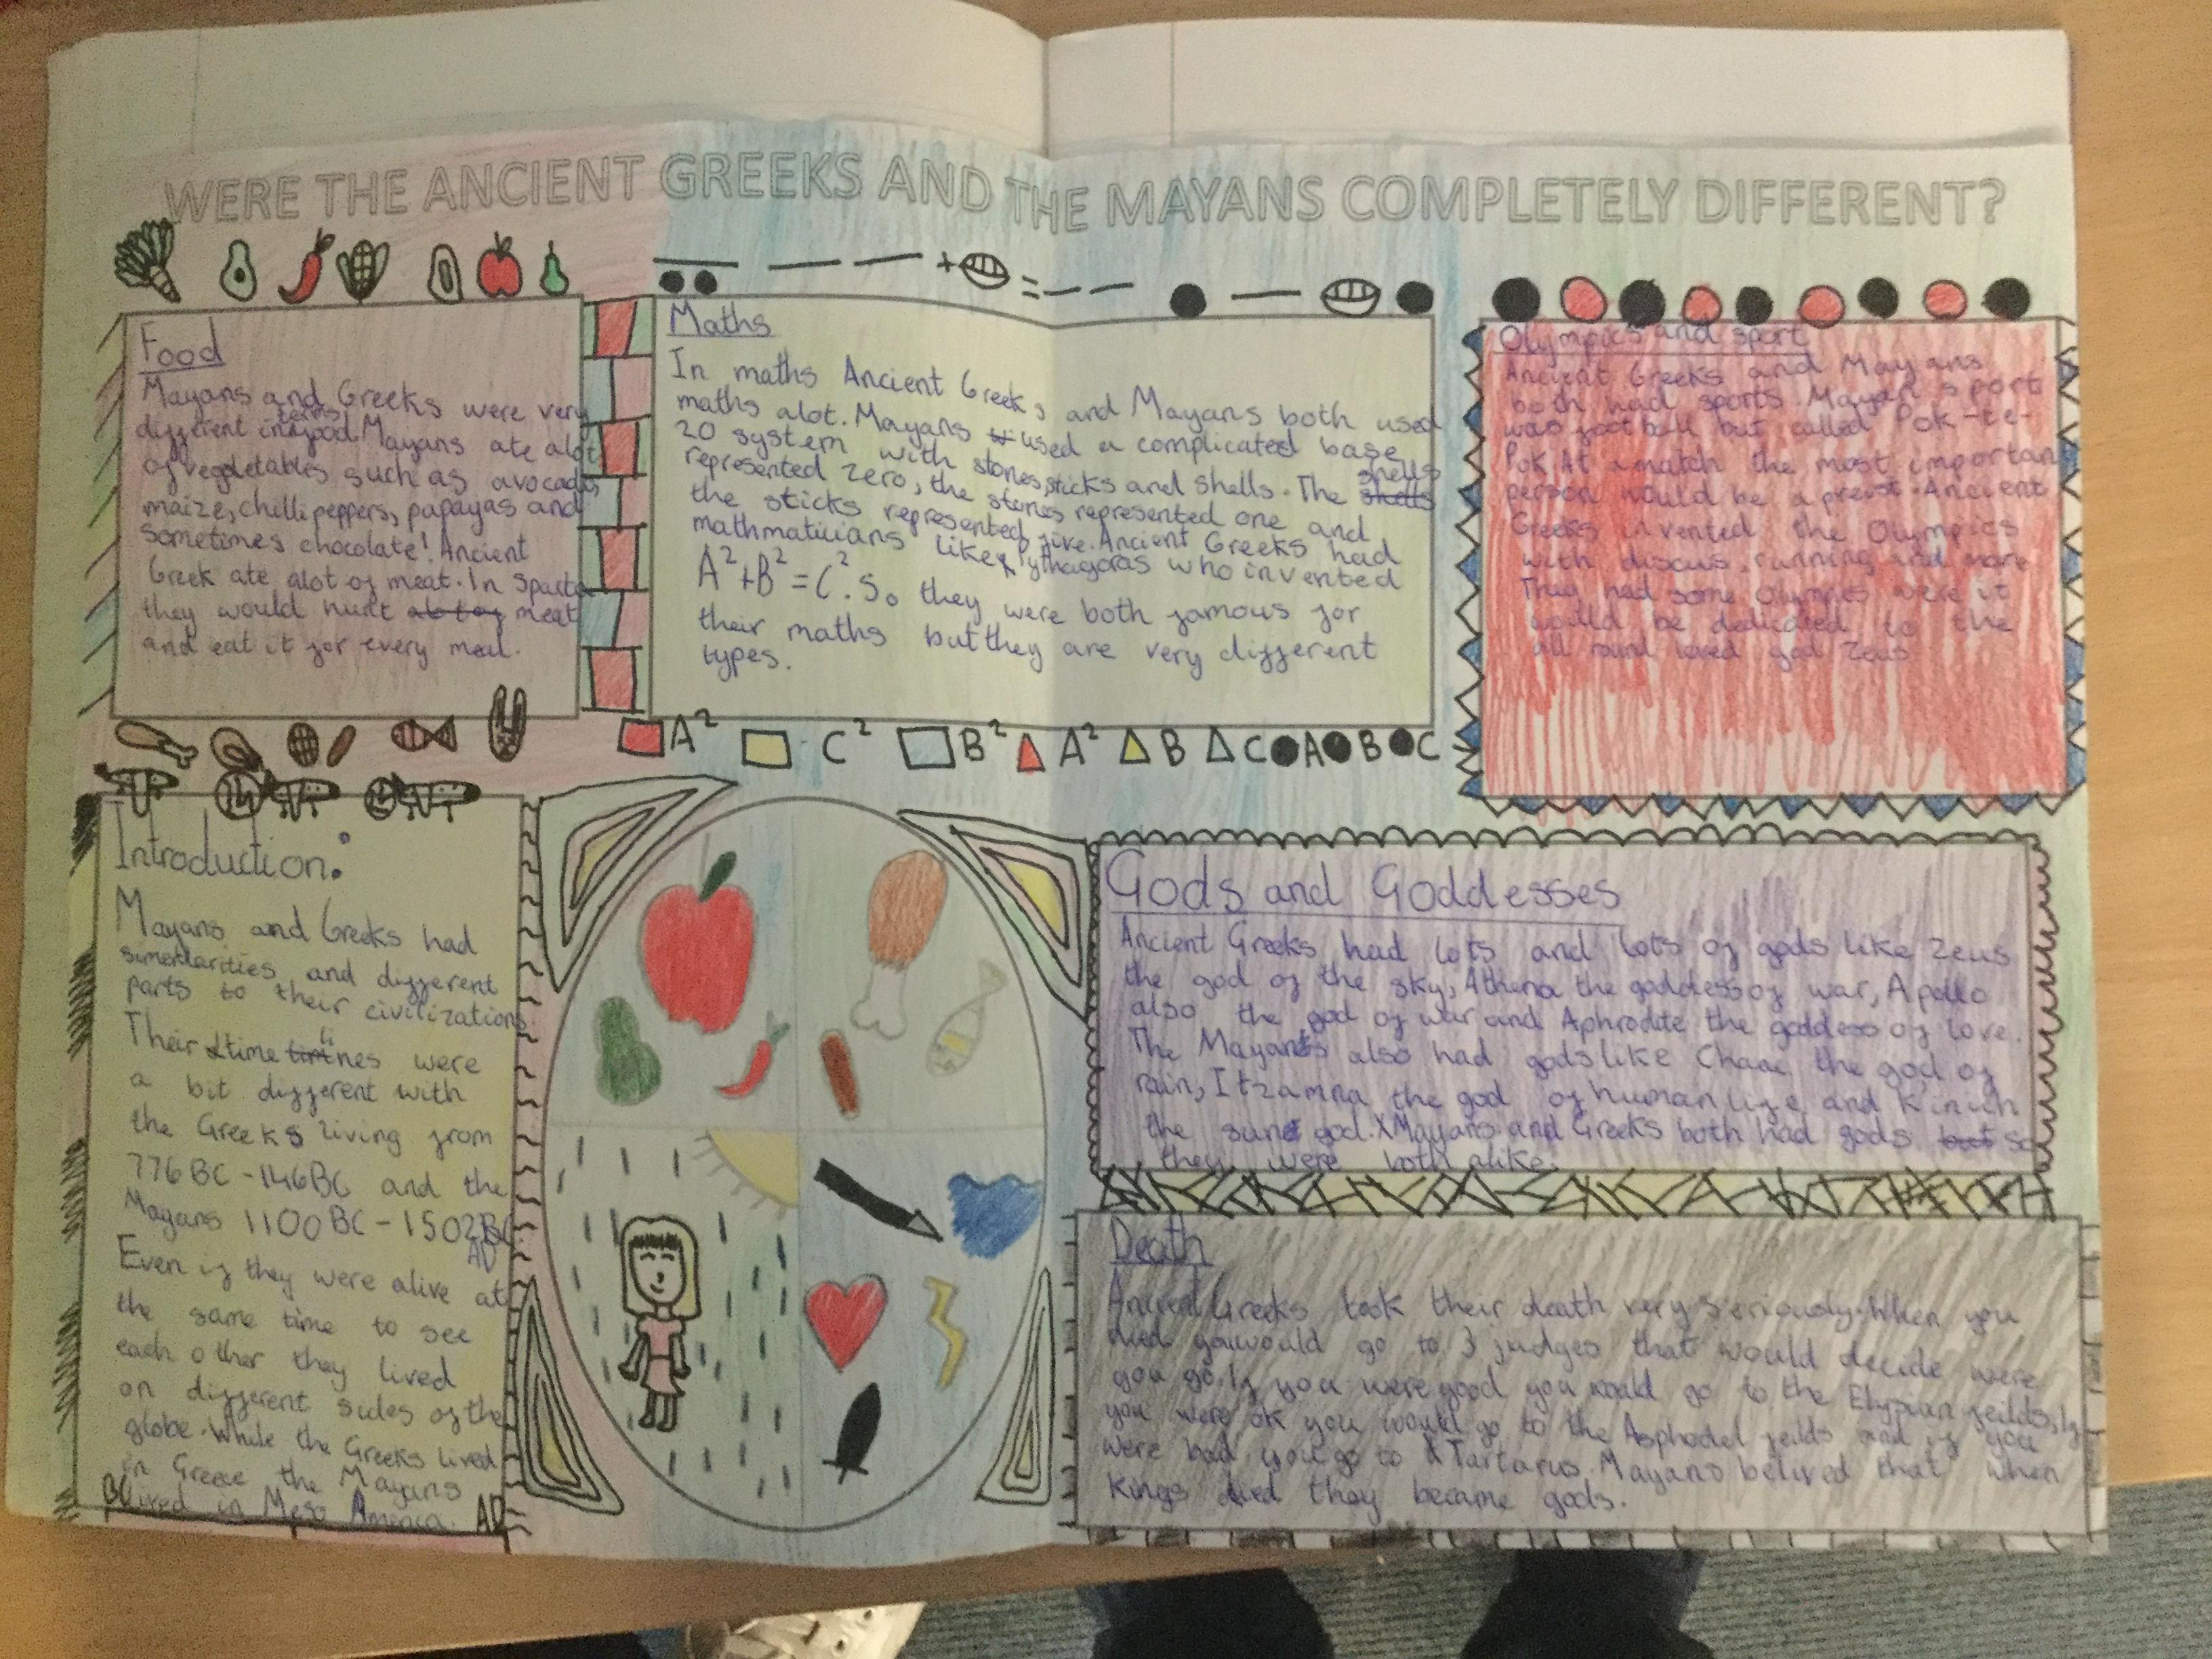 WERE THE ANCIENT GREEKS AND THE MAYANS COMPLETELY DIFFERENT?
Food
Mayans and Greeks were very
terms
different in food. Mayans ate alot
of vegetables such as avocados,
maize, chilli peppers, papayas and
sometimes chocolate! Ancient
Greek ate alot of meat. In Sparta
they would hunt alot of meat
and eat it for every meal.
Maths
In maths Ancient Greeks and Mayans both used
maths alot. Mayans used a complicated base
20 system with stones, sticks and shells. The shells
represented zero, the stones represented one and
the sticks represented five. Ancient Greeks had
mathmaticians like Pythagoras who invented
A²+B²=C². So they were both famous for
their maths but they are very different
types.
A² C² B² A² B C A B C
Olympics and sport
Ancient Greeks and Mayans
both had sports. Mayan sport
was football but called Pok-te-
Pok. At a match the most important
person would be a preist. Ancient
Greeks invented the Olympics
with discus, running and more
They had some Olympics were it
would be dedicated to the
all round loved god Zeus
Introduction:
Mayans and Greeks had
and different
parts to their civilizations.
Their time were
a bit different with
the Greeks living from
776BC-146BC and the
Mayans 1100BC-1502BC
AD
Even if they were alive at
the same time to see
each other they lived
on different sides of the
globe. While the Greeks lived
in Greece the Mayans
lived in Meso America.
BC AD
Gods and Goddesses
Ancient Greeks had lots and lots of gods like Zeus
the god of the sky, Athena the goddess of war, Apollo
also the god of war and Aphrodite the goddess of love.
The Mayans also had gods like Chaac the god of
rain, Itzamna the god of human life and Kinich
the sun god. Mayans and Greeks both had gods but so
they were both alike.
Death
Ancient Greeks took their death very seriously. When you
died you would go to 3 judges that would decide were
you go. If you were good you would go to the Elysian feilds, If
you were ok you would go to the Asphodel feilds and if you
were bad you go to Tartarus. Mayans belived that when
Kings died they became gods.